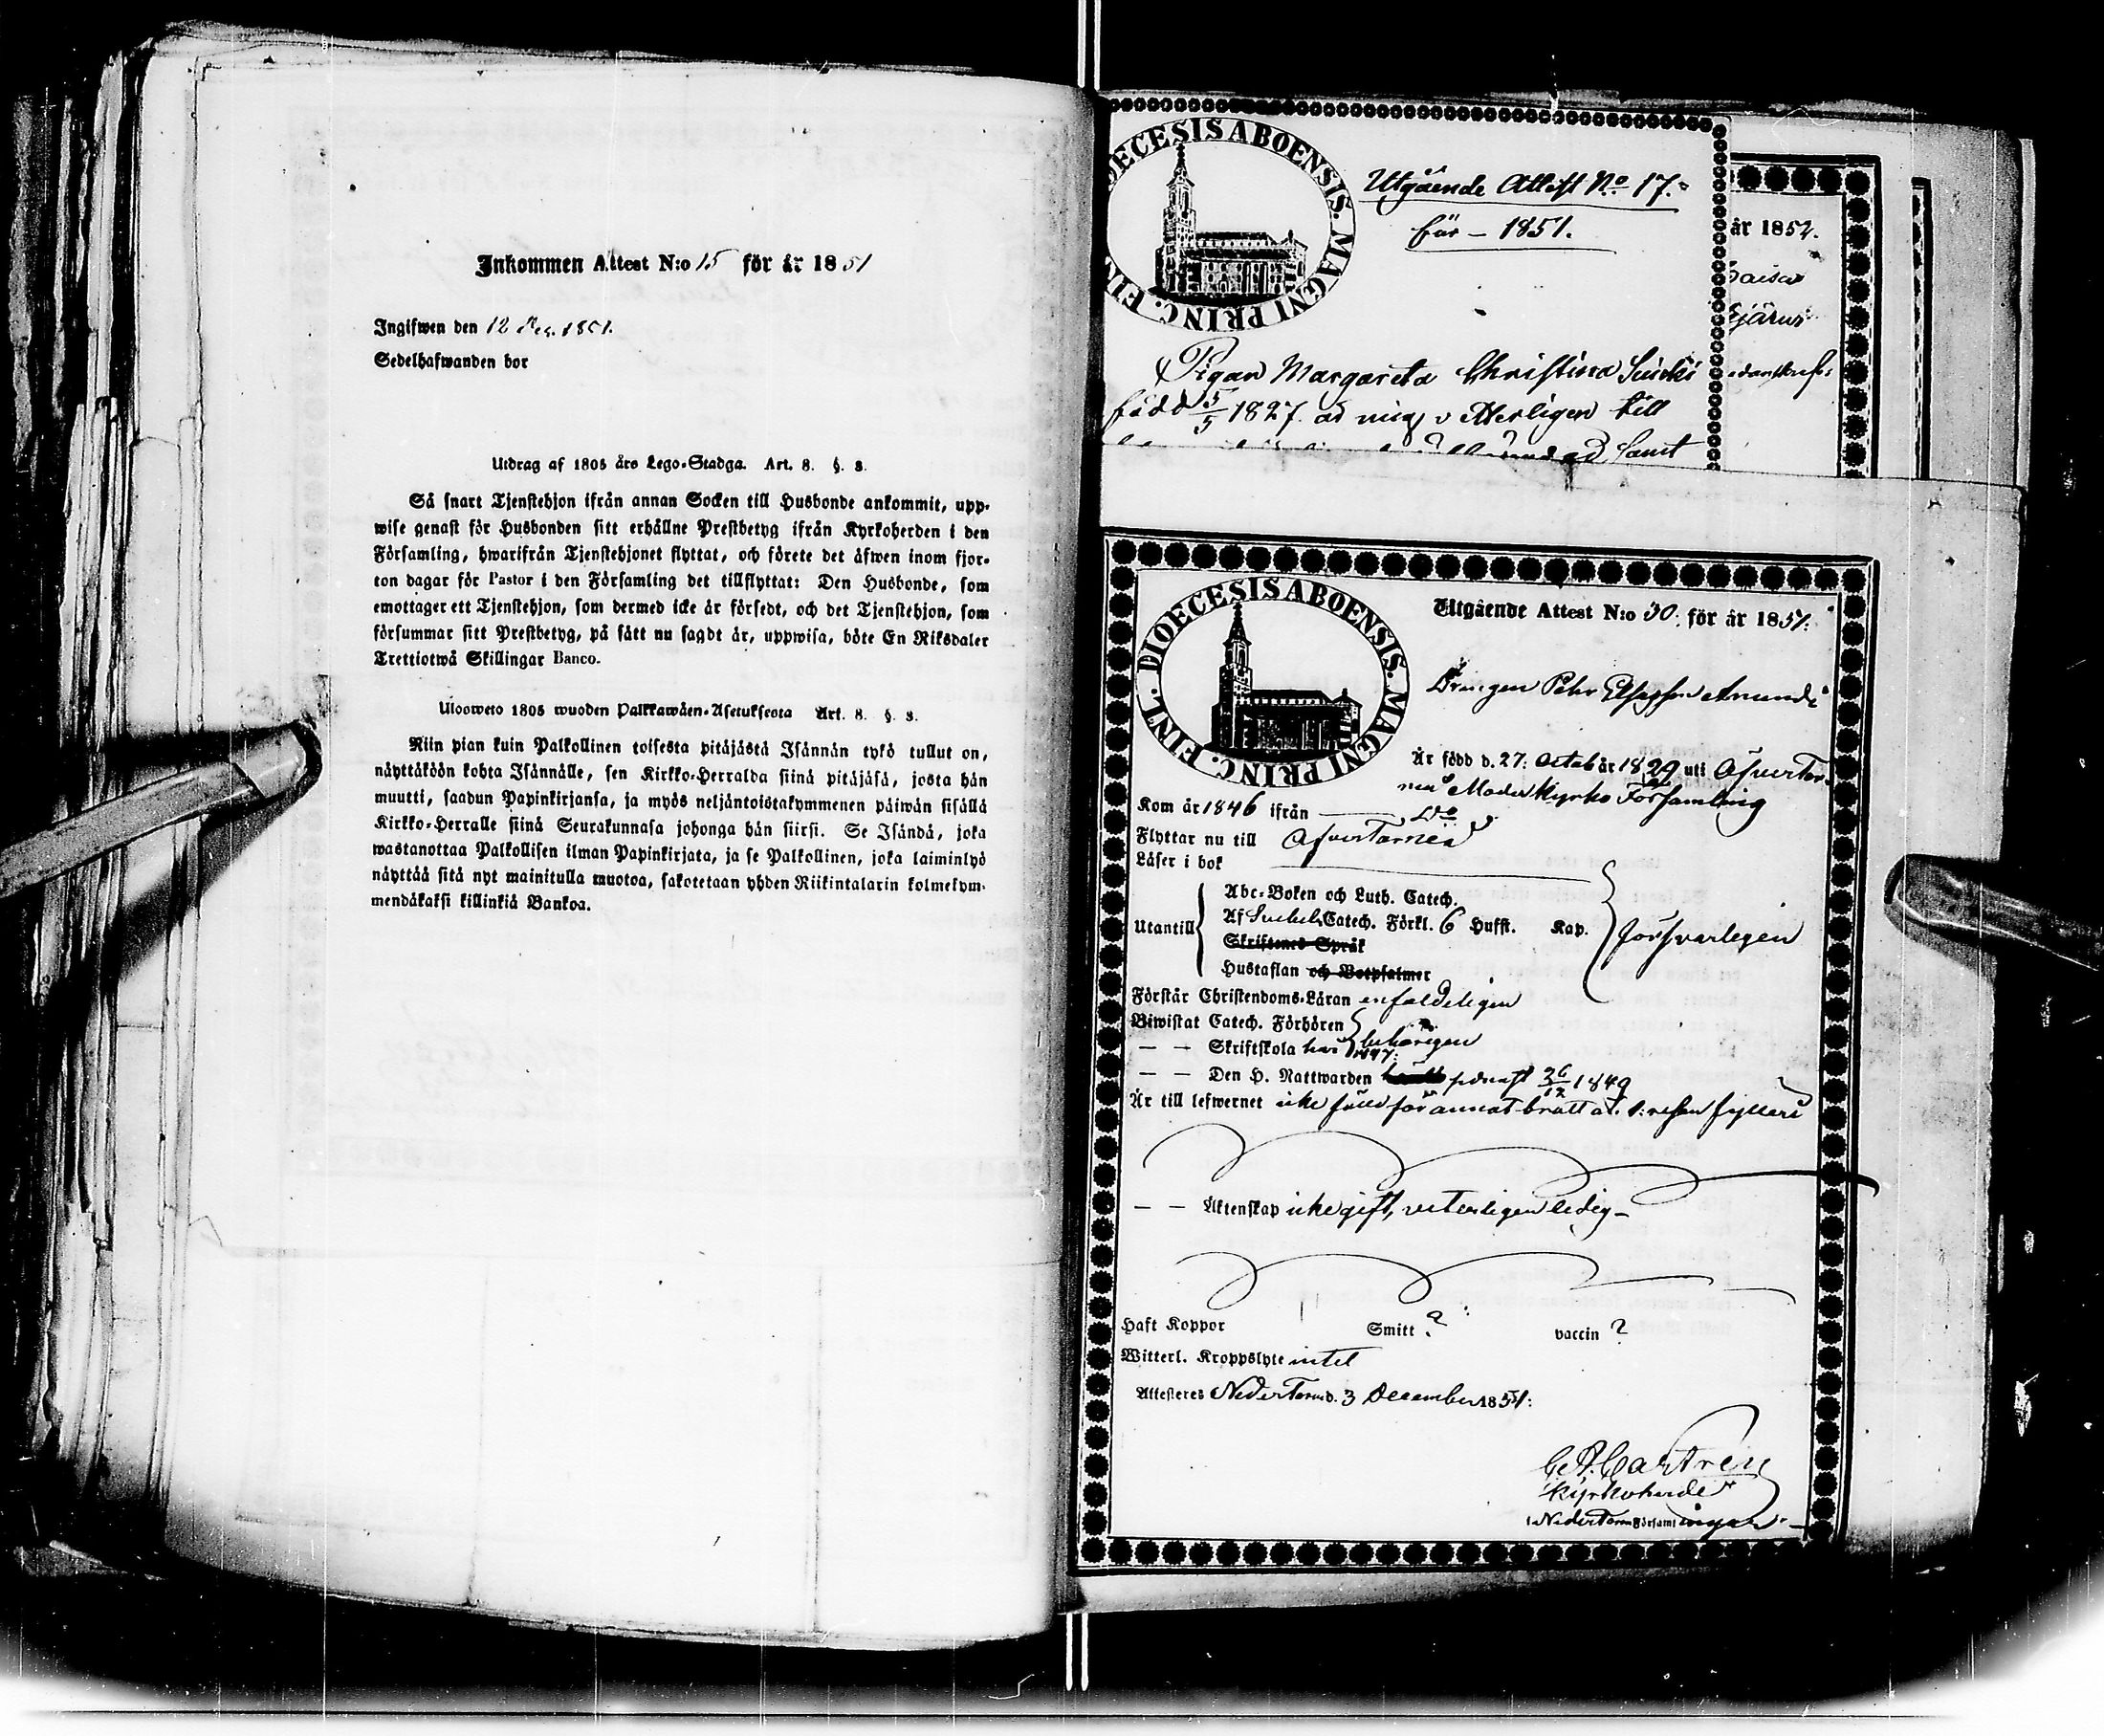 Inkommen Attest N:o 15 för år 1851
Ingifwen den 12 Dec. 1851.
Sedelhafwanden bor
Utdrag af 1805 års Lego-Stadga. Art. 8. §. 8.
Så snart Tjenstehjon ifrån annan Socken till Husbonde ankommit, upp-
wise genast för Husbonden sitt erhållne Prestbetyg ifrån Kyrkoherden i den
Församling, hwarifrån Tjenstehjonet flyttat, och förete det äfwen inom fjor-
ton dagar för Pastor i den Församling det tillflyttat: Den Husbonde, som
emottager ett Tjenstehjon, som dermed icke är försedt, och det Tjenstehjon, som
försummar sitt Prestbetyg, på sätt nu sagdt är, uppwisa, böte En Riksdaler
Trettiotwå Skillingar Banco.
Ulosweto 1805 wuoden Palkkawäen-Asetuksesta Art. 8. §. 8.
Niin pian kuin Palkollinen toisesta pitäjästä Isännän tykö tullut on,
näyttäköön kohta Isännälle, sen Kirkko-Herralda siinä pitäjäsä, josta hän
muutti, saadun Papinkirjansa, ja myös neljäntoistakymmenen päiwän sisällä
Kirkko-Herralle siinä Seurakunnasa johonga hän siirsi. Se Isändä, joka
wastanottaa Palkollisen ilman Papinkirjata, ja se Palkollinen, joka laiminlyö
näyttää sitä nyt mainitulla muotoa, sakotetaan yhden Riikintalarin kolmekym-
mendäkaksi killinkiä Bankoa.
DIOECESIS ABOENSIS. MAGNI PRINC. FIN
Utgående Attest No 17.
för - 1851.
Pigan Margareta Christina
född 5/5 1827. ad mig vetterligen till
samt
år 185
Utgående Attest N:o 30. för år 1851.
DIOECESIS ABOENSIS. MAGNI PRINC. FINL.
Drengen Pehr
Är född d. 27. Octob år 1829 uti Öfwer Tor-
neå Moder Kyrko Församling
Kom år 1846 ifrån Do
Flyttar nu till Öfwer Torneå
Läser i bok
Utantill
Abc-Boken och Luth. Catech.
Af Svebel. Catech. Förkl. 6 Hufst. Kap. försvarligen
Skriftenes Språk
Hustaflan och Botpsalmer
Förstår Christendoms-Läran enfaldeligen
Biwistat Catech. Förhören
behörigen
— — Skriftskola har 1847:
— — Den H. Nattwarden senast 26/12 1849
Är till lefwernet icke för annat brott än 1: resan fylleri
— — Äktenskap icke gift, veterligen ledig —
Haft Koppor Smitt ? vaccin ?
Witterl. Kroppslyte intet
Attesteres Neder Torneå d. 3 December 1851:
Castrén
Kyrkoherde
i Neder Torneå Församlingar